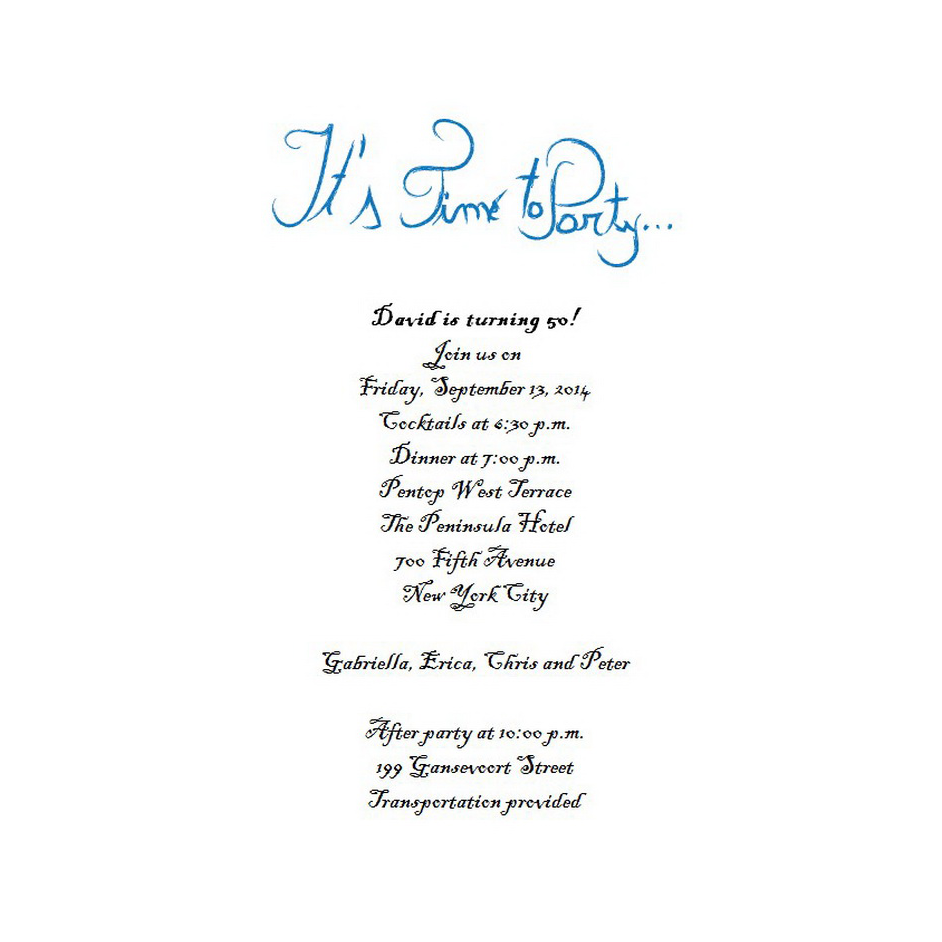 It's Time to Party...
David is turning 50!
Join us on
Friday, September 13, 2014
Cocktails at 6:30 p.m.
Dinner at 7:00 p.m.
Pentop West Terrace
The Peninsula Hotel
700 Fifth Avenue
New York City
Gabriella, Erica, Chris and Peter
After party at 10:00 p.m.
199 Gansevoort Street
Transportation provided